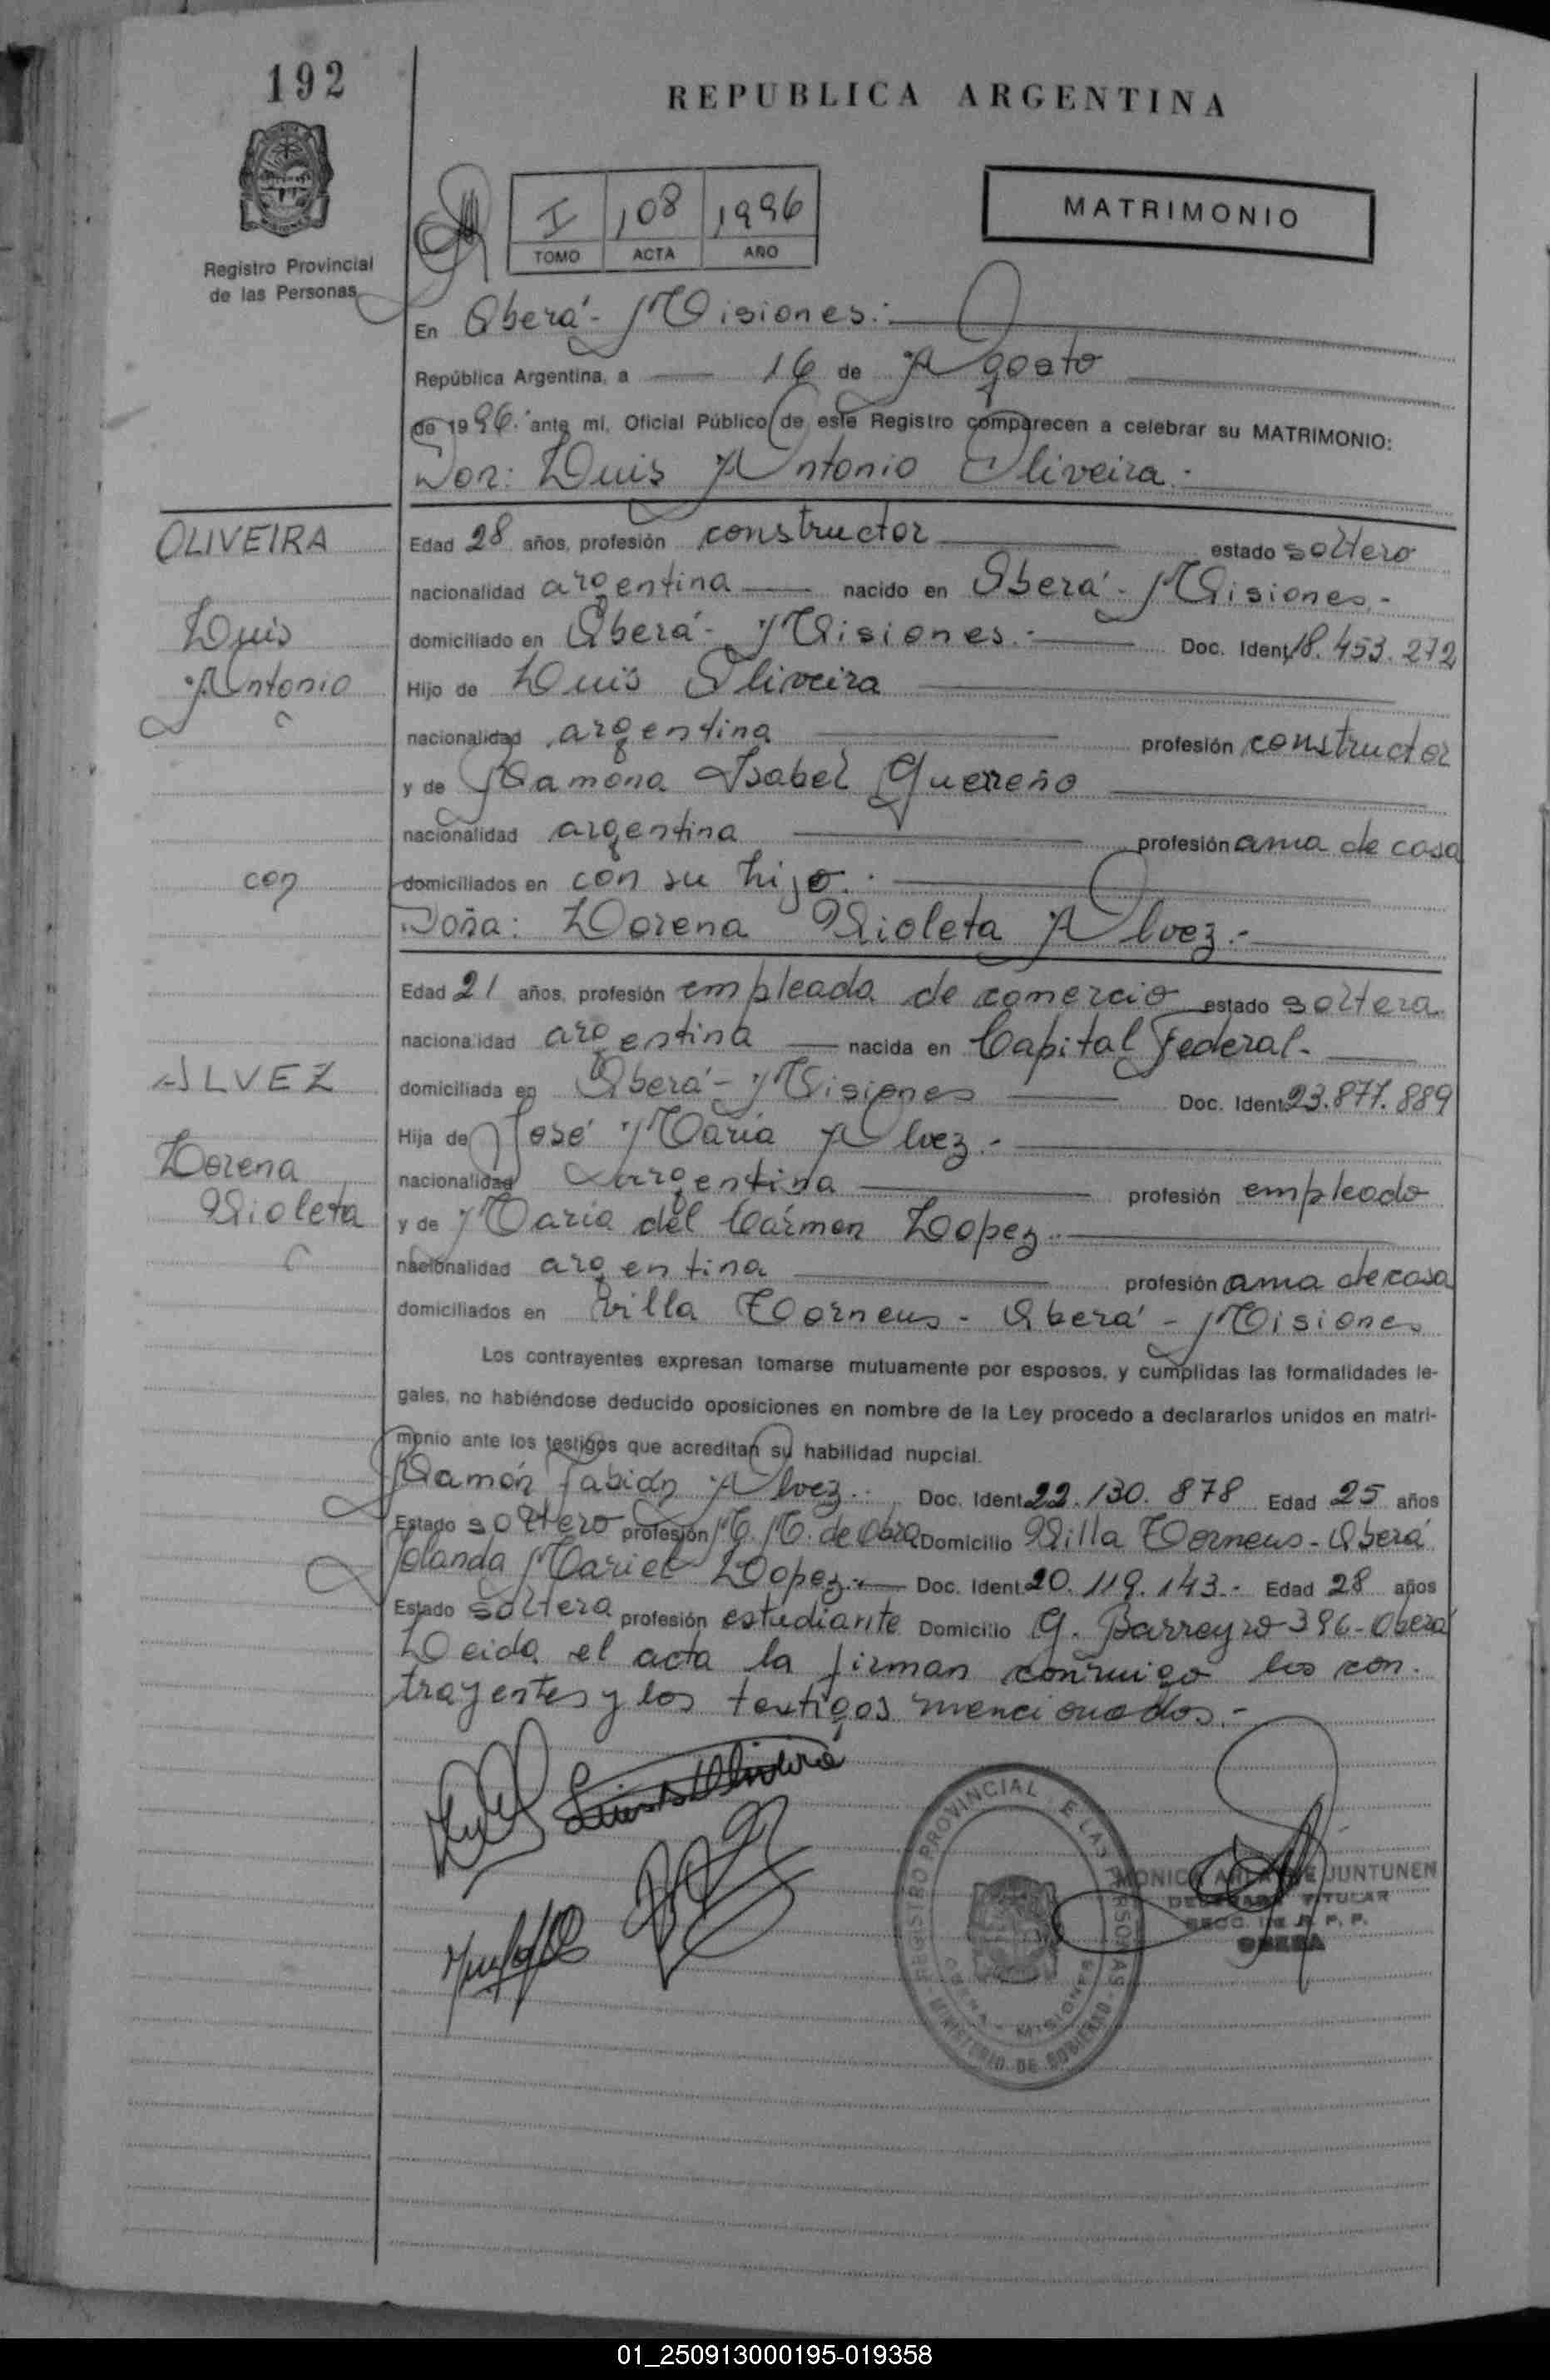 192
REPUBLICA ARGENTINA
Registro Provincial
de las Personas
I 108 1996
TOMO ACTA AÑO
MATRIMONIO
En Oberá - Misiones.-
República Argentina, a 16 de Agosto
de 1996.- ante mí, Oficial Público de este Registro comparecen a celebrar su MATRIMONIO:
Don: Luis Antonio Oliveira.-
OLIVEIRA
Luis
Antonio
con
ALVEZ
Lorena
Violeta
Edad 28 años, profesión constructor estado soltero
nacionalidad argentina nacido en Oberá - Misiones.-
domiciliado en Oberá - Misiones.- Doc. Ident. 18.453.272
Hijo de Luis Oliveira
nacionalidad argentina profesión constructor
y de Ramona Isabel Guerreño
nacionalidad argentina profesión ama de casa
domiciliados en con su hijo.-
Doña: Lorena Violeta Alvez.-
Edad 21 años, profesión empleada de comercio estado soltera
nacionalidad argentina nacida en Capital Federal.-
domiciliada en Oberá - Misiones Doc. Ident. 23.877.889
Hija de José María Alvez.-
nacionalidad argentina profesión empleado
y de María del Cármen Lopez.-
nacionalidad argentina profesión ama de casa
domiciliados en Villa Torneus - Oberá - Misiones
Los contrayentes expresan tomarse mutuamente por esposos, y cumplidas las formalidades le-
gales, no habiéndose deducido oposiciones en nombre de la Ley procedo a declararlos unidos en matri-
monio ante los testigos que acreditan su habilidad nupcial.
Ramón Fabián Alvez.- Doc. Ident. 22.130.878 Edad 25 años
Estado soltero profesión M. M. de Obra Domicilio Villa Torneus - Oberá
Jolanda Mariel Lopez.- Doc. Ident. 20.119.143.- Edad 28 años
Estado soltera profesión estudiante Domicilio G. Barreyro 396 - Oberá
Leida el acta la firman conmigo los con-
trayentes y los testigos mencionados.-
REGISTRO PROVINCIAL DE LAS PERSONAS
MINISTERIO DE GOBIERNO
OBERA - MISIONES
MONICA JUNTUNEN
DELEGADA TITULAR
SECC. DE R. P. P.
OBERA
01_250913000195-019358